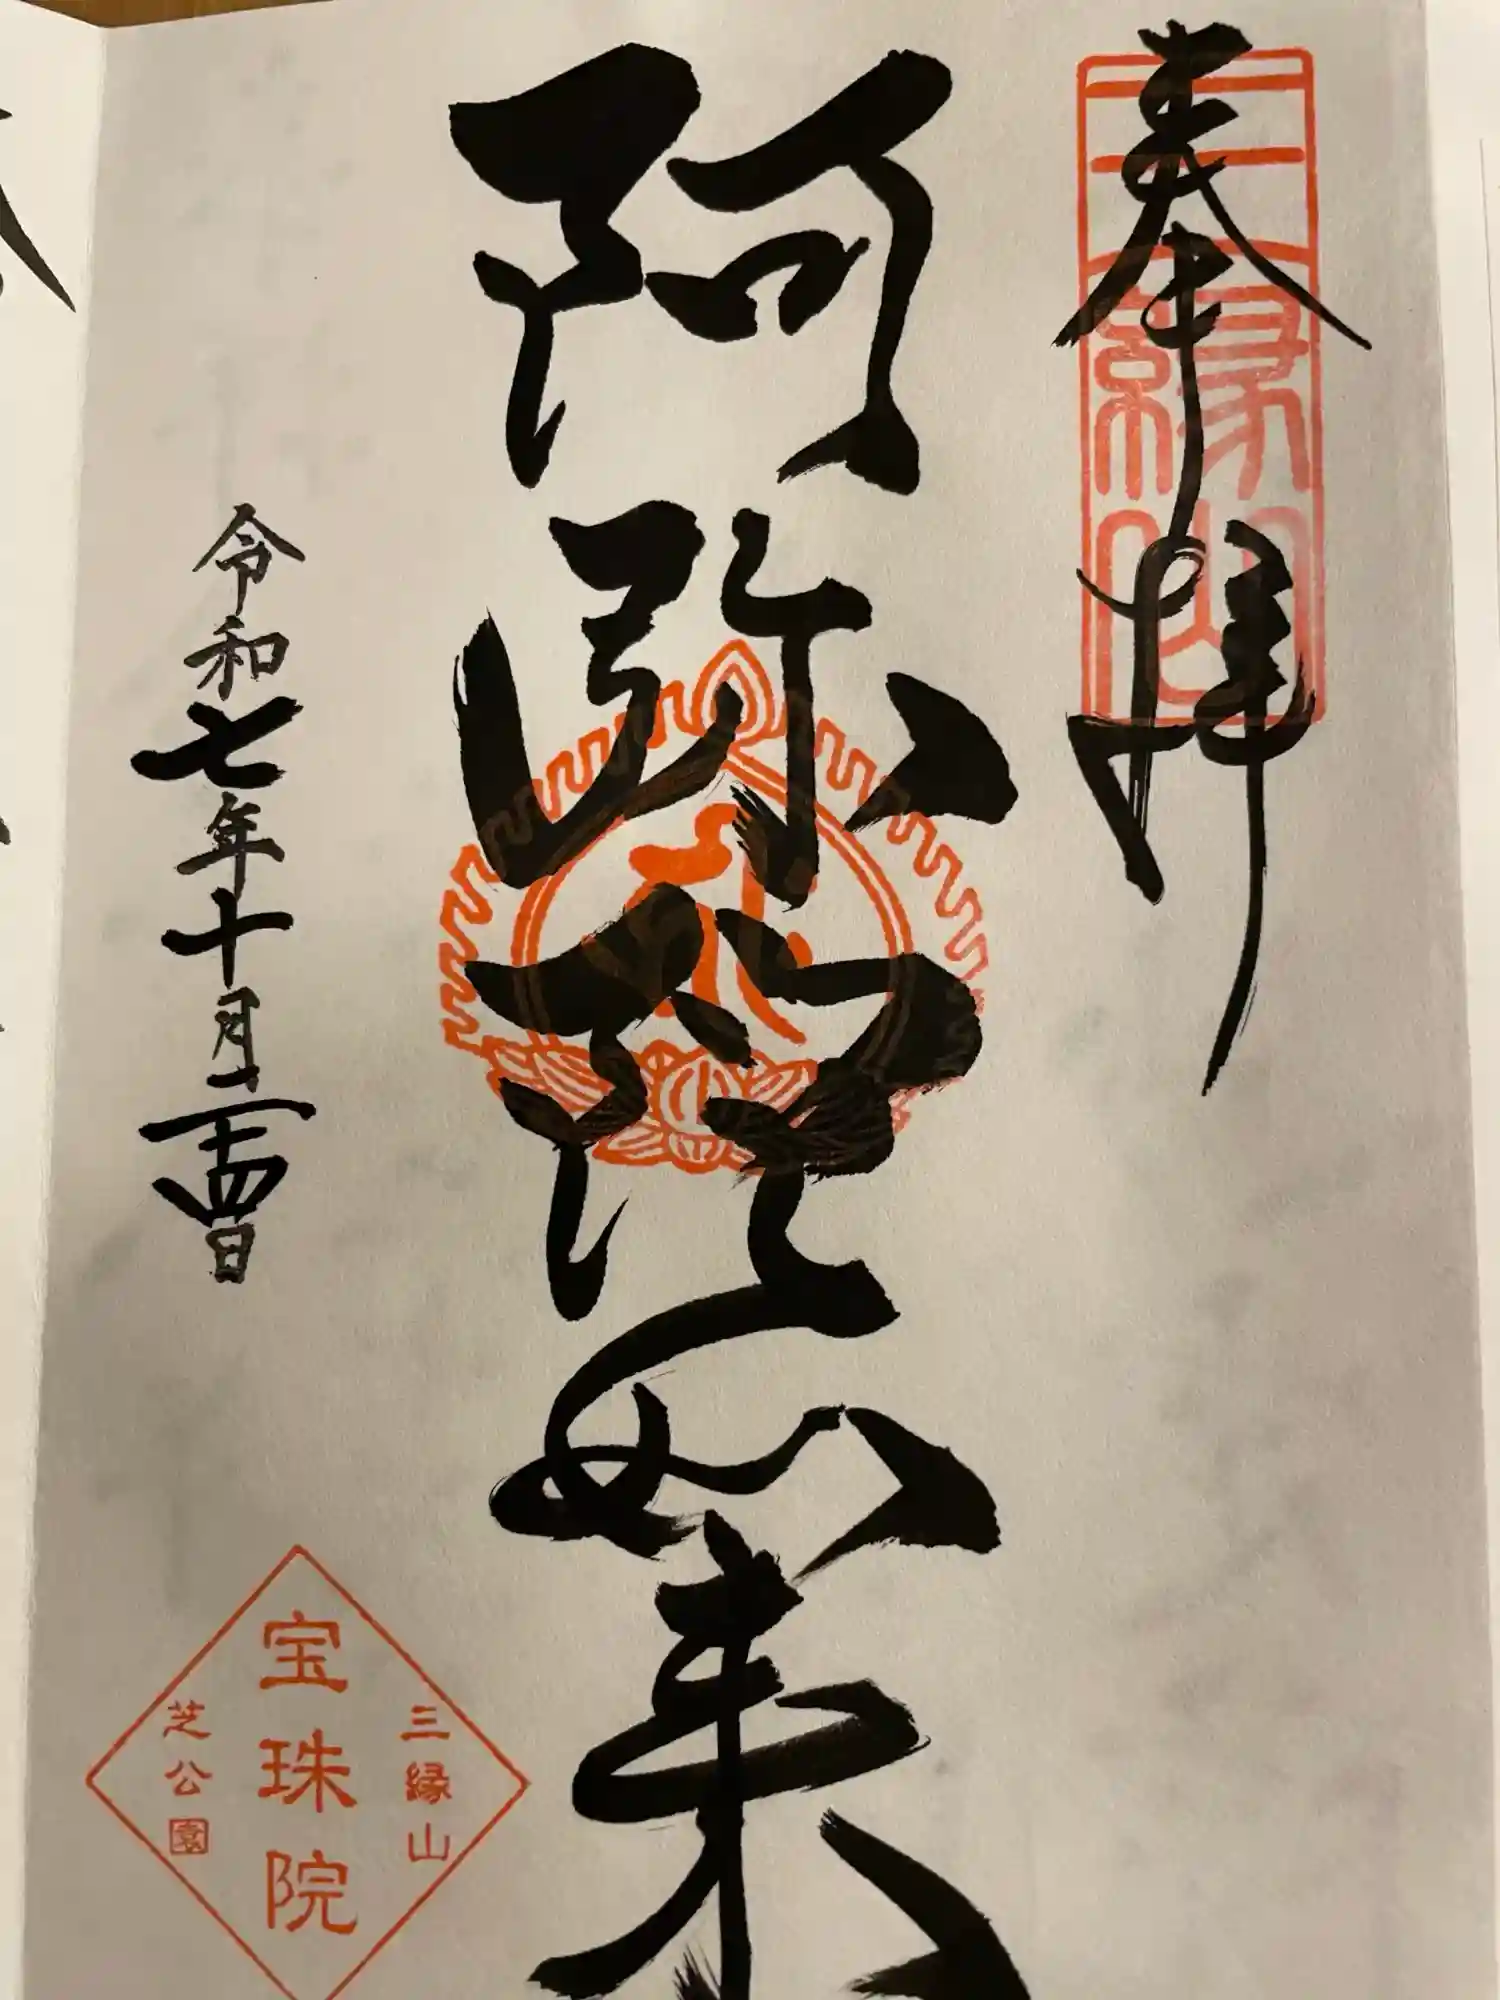 奉拝
三縁山
阿弥陀如来
令和七年十月二十四日
三縁山
宝珠院
芝公園